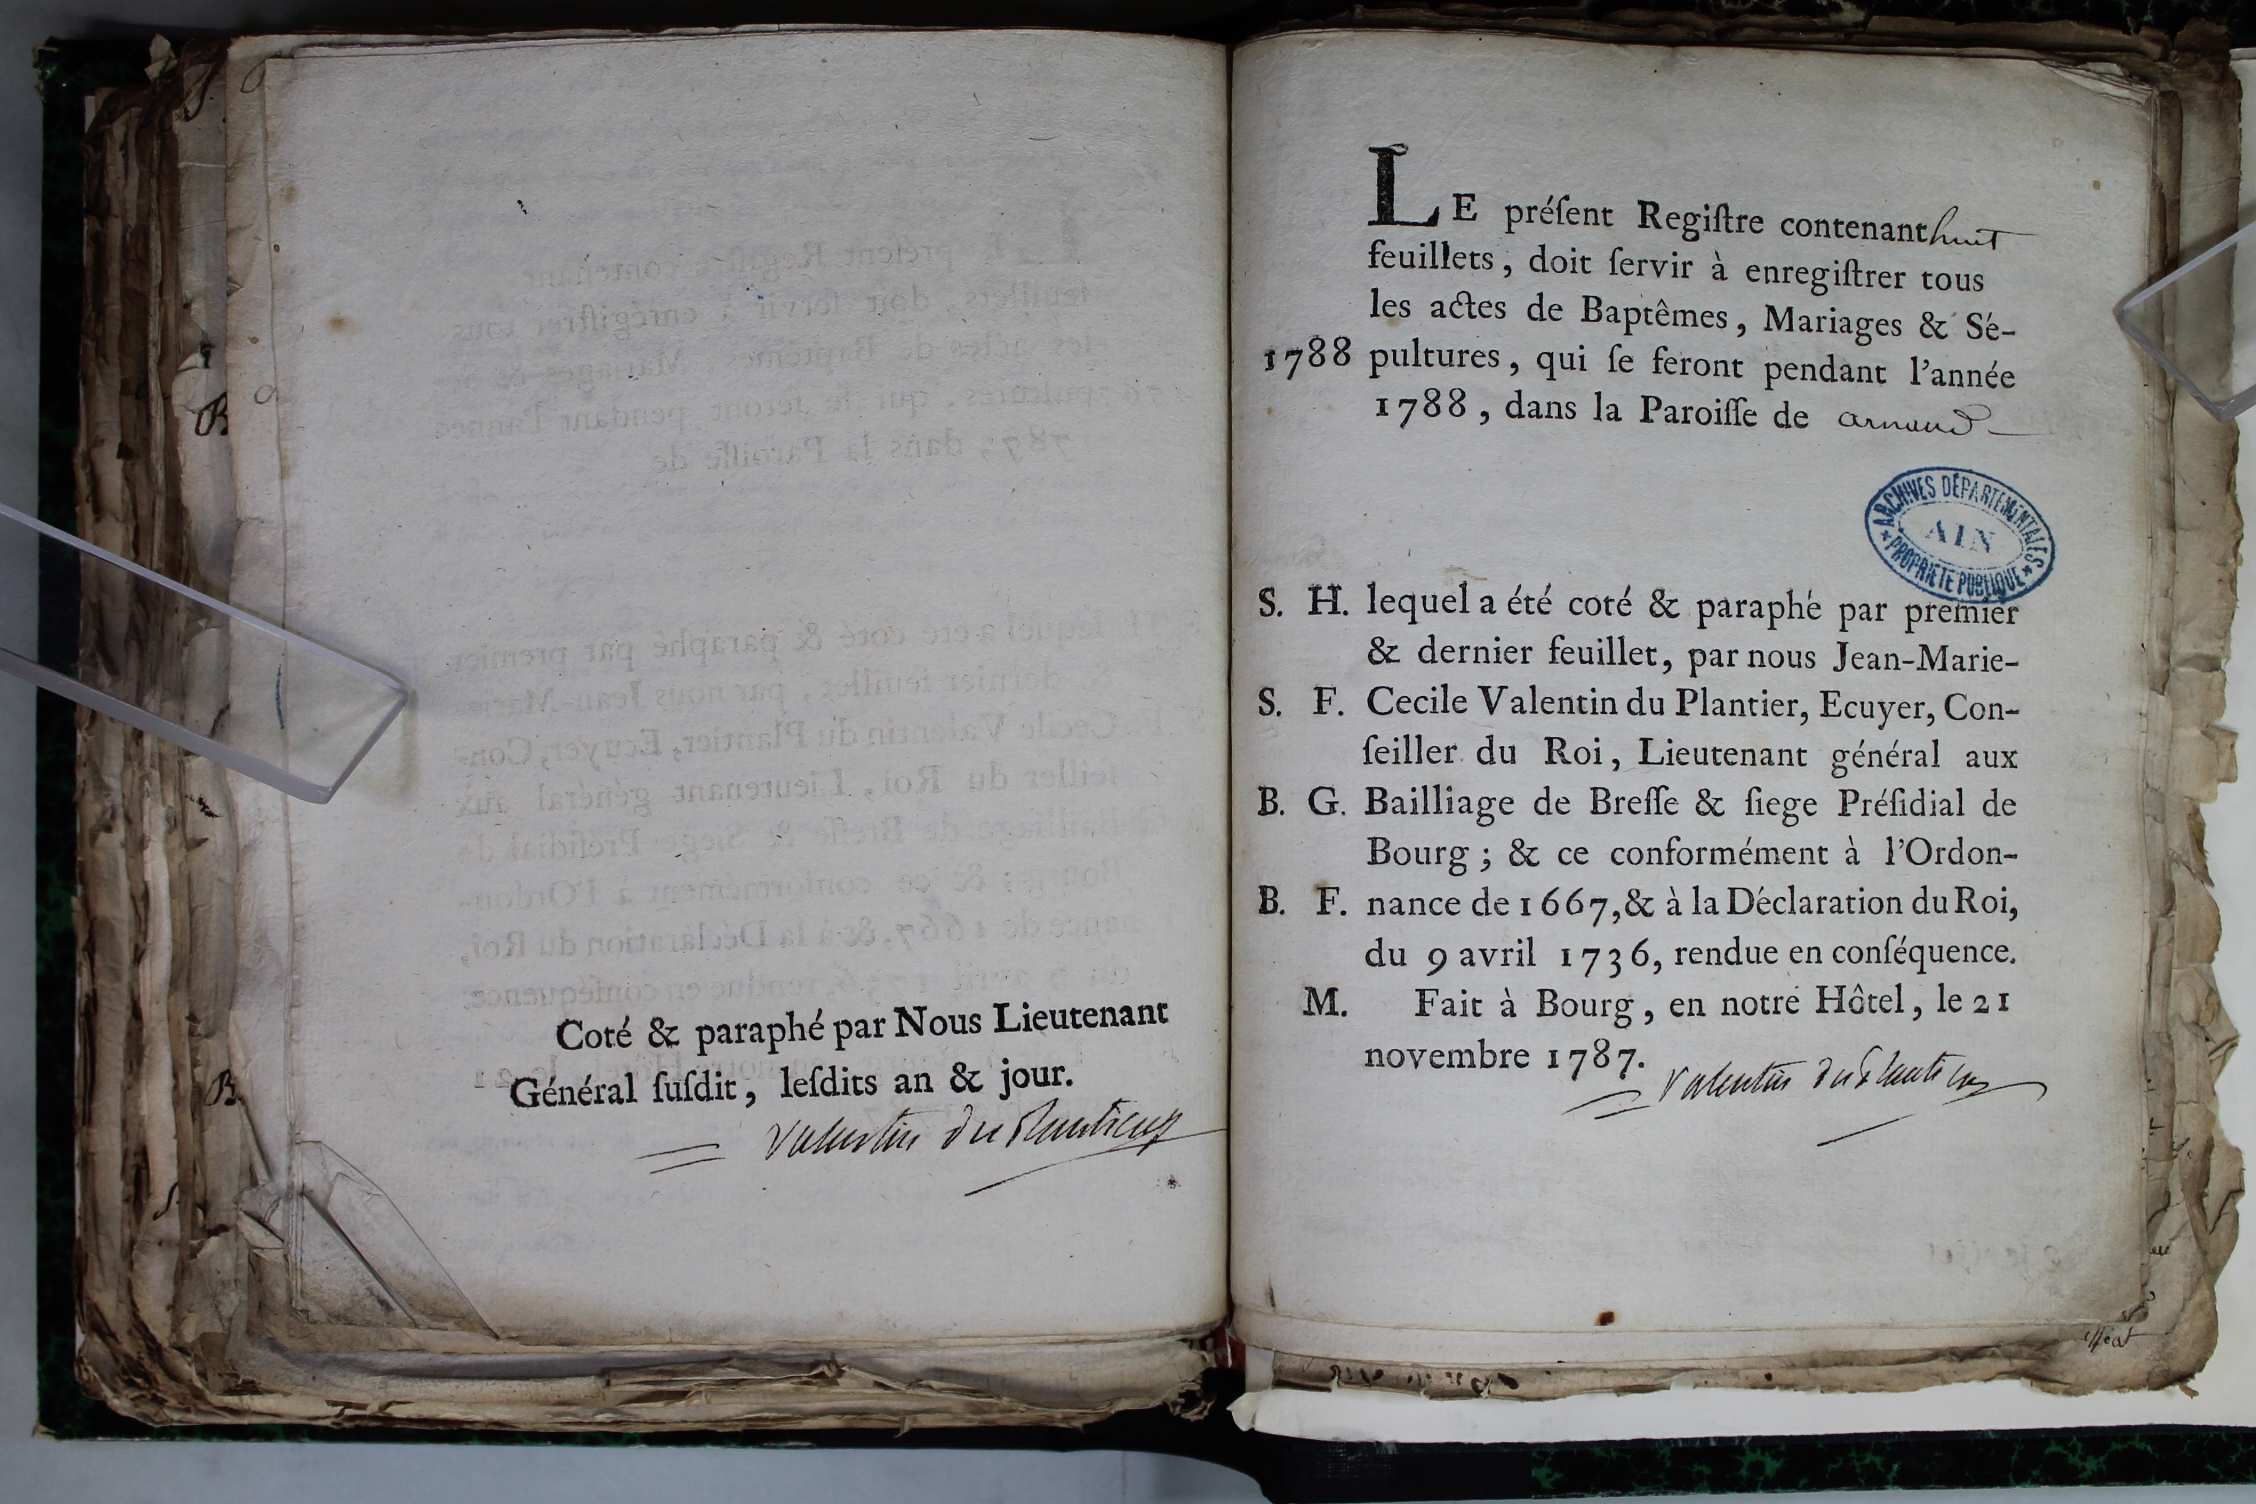 Coté & paraphé par Nous Lieutenant
Général ſuſdit, leſdits an & jour.
Valentin du Plantier
LE préſent Regiſtre contenant huit
feuillets, doit ſervir à enregiſtrer tous
les actes de Baptêmes, Mariages & Sé-
1788 pultures, qui ſe feront pendant l'année
1788, dans la Paroiſſe de arnand
ARCHIVES DÉPARTEMENTALES
AIN
PROPRIÉTÉ PUBLIQUE
S. H. lequel a été coté & paraphé par premier
& dernier feuillet, par nous Jean-Marie-
S. F. Cecile Valentin du Plantier, Ecuyer, Con-
ſeiller du Roi, Lieutenant général aux
B. G. Bailliage de Breſſe & ſiege Préſidial de
Bourg ; & ce conformément à l'Ordon-
B. F. nance de 1667, & à la Déclaration du Roi,
du 9 avril 1736, rendue en conſéquence.
M. Fait à Bourg, en notre Hôtel, le 21
novembre 1787.
Valentin du Plantier